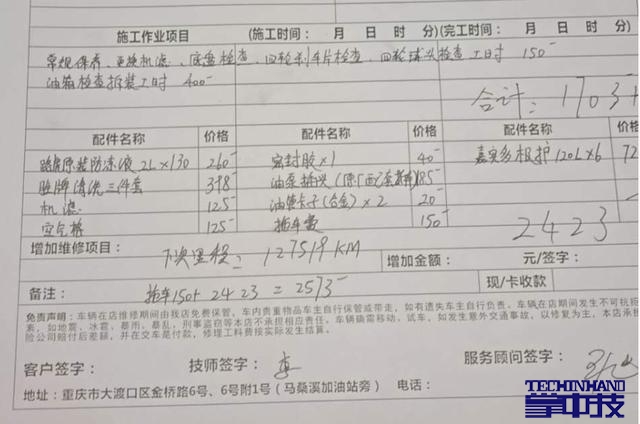 施工作业项目 (施工时间: 月 日 时 分) (完工时间: 月 日 时 分)
常规保养、更换机滤、底盘检查、四轮刹车片检查、四轮球头检查工时 150-
油箱检查拆装工时 400-
合计: 1703
配件名称 价格 配件名称 价格 配件名称 价格
原装防冻液 2L×130 260- 密封胶×1 40- 嘉实多极护 120L×6 72
清洗三件套 398 油泵 185-
机滤 125- 油管卡子(合金)×2 20-
空气格 125- 拖车费 150-
2423
增加维修项目: 下次里程: 127519KM 增加金额: 元/签字:
备注: 拖车150+2423=2573- 现/卡收款
免责声明:车辆在店维修期间由我店免费保管,车内贵重物品车主自行保管或带走,如有遗失车主自行负责。车辆在店期间发生不可抗拒
素,如地震、冰雹、暴雨、暴乱、刑事盗窃等本店不承担相应责任。车辆确需移动、试车,如发生意外交通事故,以修复为主,本店承
险公司赔付后差额,并在交车是付款,修理工料费按实际发生结算。
客户签字: 技师签字: 服务顾问签字:
地址:重庆市大渡口区金桥路6号、6号附1号(马桑溪加油站旁) 电话:
TECHINHAND
掌中技